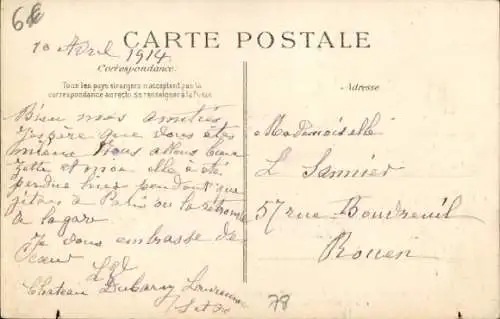 6€
10 Avril 1914
CARTE POSTALE
Correspondance
Tous les pays étrangers n'acceptent pas la
correspondance au recto. (Se renseigner à la Poste)
Adresse
Bien mes amitiés
J'espère que vous êtes
mieux Nous allons bien
et moi elle a été
perdue mes pendant que
j'étais à Paris on l'a
à la gare
Je vous embrasse de
Coeur
Château Dubarry
Mademoiselle
L Sannier
57 rue Bouvreuil
Rouen
78